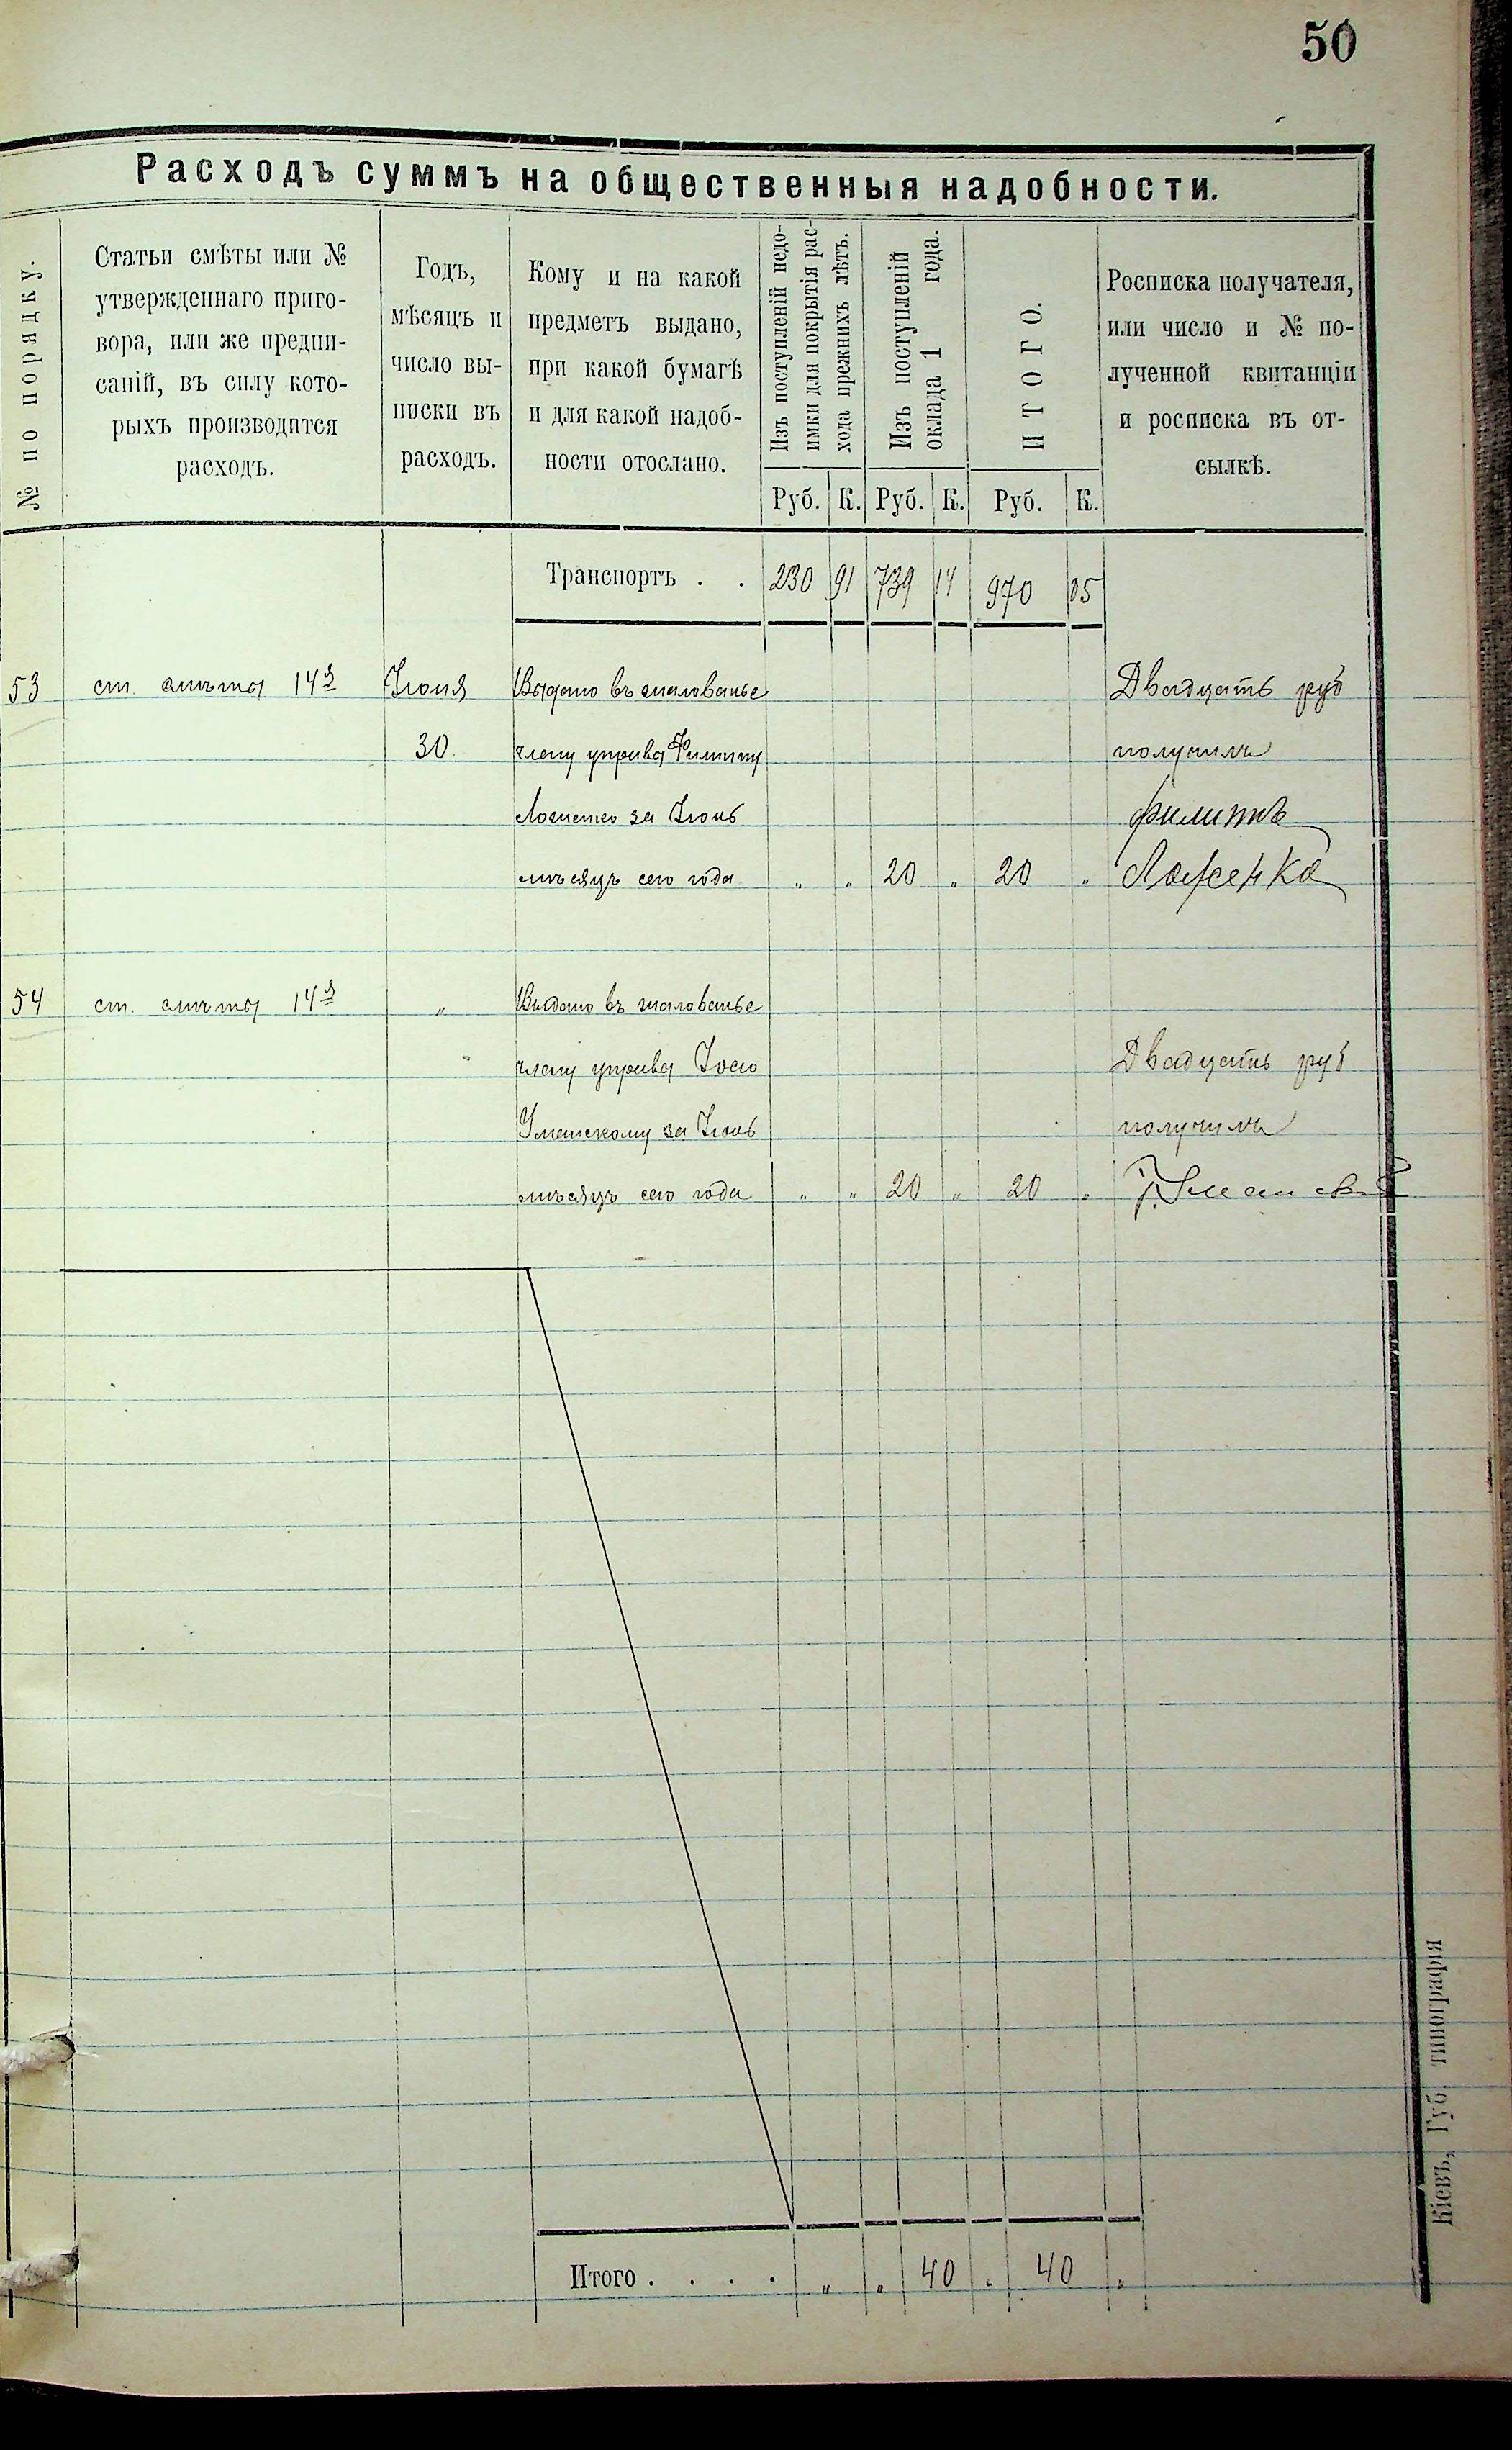 50
Расходъ суммъ на общественныя надобности.
№ по порядку.
Статьи смѣты или №
утвержденнаго приго-
вора, или же предпи-
саній, въ силу кото-
рыхъ производится
расходъ.
Годъ,
мѣсяцъ и
число вы-
писки въ
расходъ.
Кому и на какой
предметъ выдано,
при какой бумагѣ
и для какой надоб-
ности отослано.
Изъ поступленій недо-
имки для покрытія рас-
хода прежнихъ лѣтъ.
Изъ поступленій
оклада 1 года.
ИТОГО.
Росписка получателя,
или число и № по-
лученной квитанціи
и росписка въ от-
сылкѣ.
Руб. К. Руб. К. Руб. К.
Транспортъ . . 230 91 739 14 970 05
53 ст. смѣты 14я Іюня Выдано въ жалованье Двадцать руб
30 члену управы Филипу получилъ
Ложенко за Іюнь Филипъ
мѣсяцъ сего года „ „ 20 „ 20 „ Ложенко
54 ст. смѣты 14я „ Выдано въ жалованье
„ члену управы Двадцать руб
Уманскому за Іюнь получилъ
мѣсяцъ сего года „ „ 20 „ 20 „ Уманскій
Итого . . . . „ „ 40 „ 40 „
Кіевъ, Губ. типографія